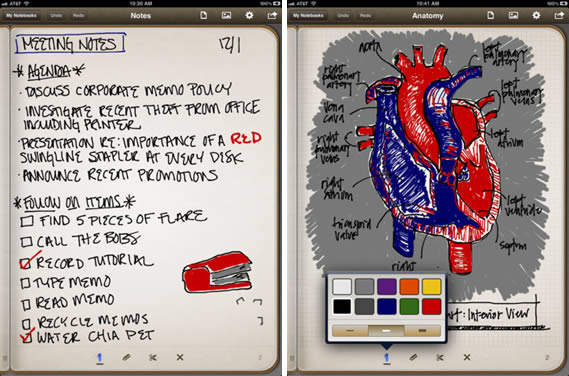 AT&T
10:30 AM
My Notebooks
Undo
Redo
Notes
MEETING NOTES
12/1
* AGENDA *
· DISCUSS CORPORATE MEMO POLICY
· INVESTIGATE RECENT THEFT FROM OFFICE
INCLUDING PRINTER
· PRESENTATION RE: IMPORTANCE OF A RED
SWINGLINE STAPLER AT EVERY DISK
· ANNOUNCE RECENT PROMOTIONS
* FOLLOW ON ITEMS *
FIND 5 PIECES OF FLARE
CALL THE BOBS
RECORD TUTORIAL
TYPE MEMO
READ MEMO
RECYCLE MEMOS
WATER CHIA PET
2
AT&T
10:41 AM
My Notebooks
Undo
Redo
Anatomy
aorta
left
pulmonary
artery
right
pulmonary
artery
left
pulmonary
veins
vena
cava
right
pulmonary
veins
left
atrium
right
atrium
left
ventricle
tricuspid
valve
septum
right
art: Interior View
2